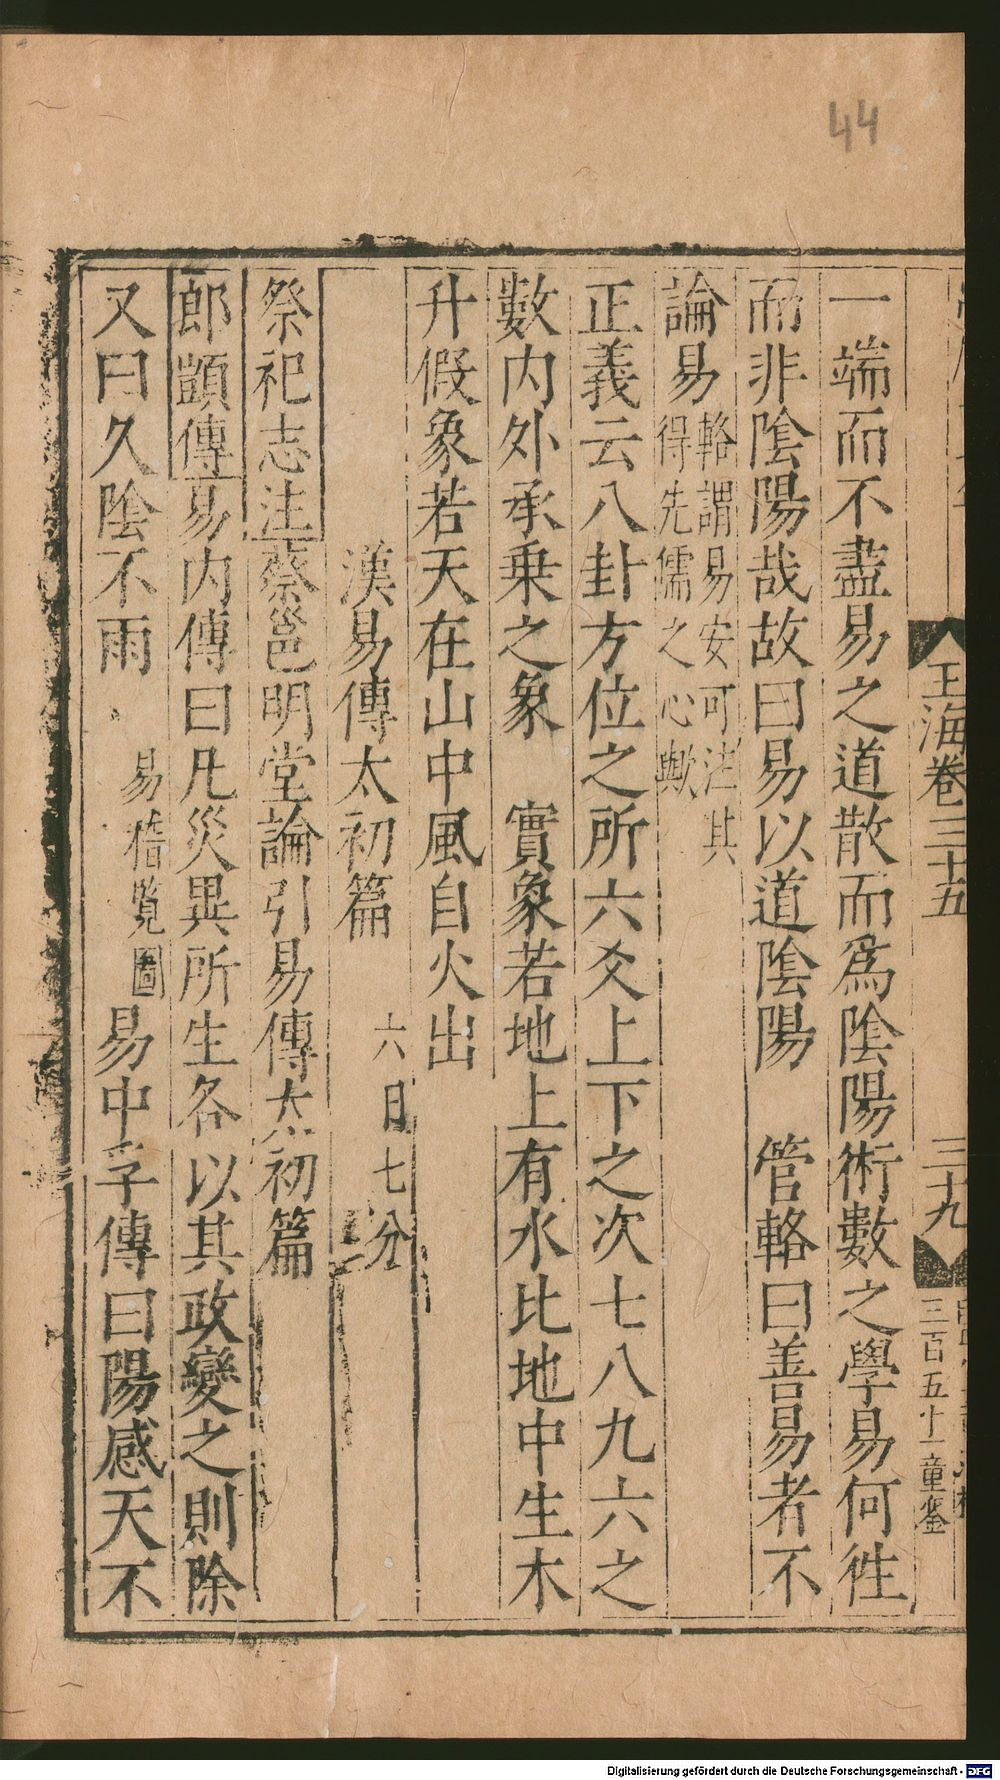 44
玉海卷三十五
三十九
三百五十一童鉴
一端而不盡易之道散而爲陰陽術數之學易何徃
而非陰陽哉故曰易以道陰陽　管輅曰善易者不
論易輅謂易安可注其得先儒之心歟
正義云八卦方位之所六爻上下之次七八九六之
數内外承乗之象　實象若地上有水比地中生木
升假象若天在山中風自火出
漢易傳太初篇　六日七分
祭祀志注蔡邕明堂論引易傳太初篇
郎顗傳易内傳曰凡災異所生各以其政變之則除
又曰久陰不雨　易稽覧圖易中孚傳曰陽感天不
Digitalisierung gefördert durch die Deutsche Forschungsgemeinschaft - DFG